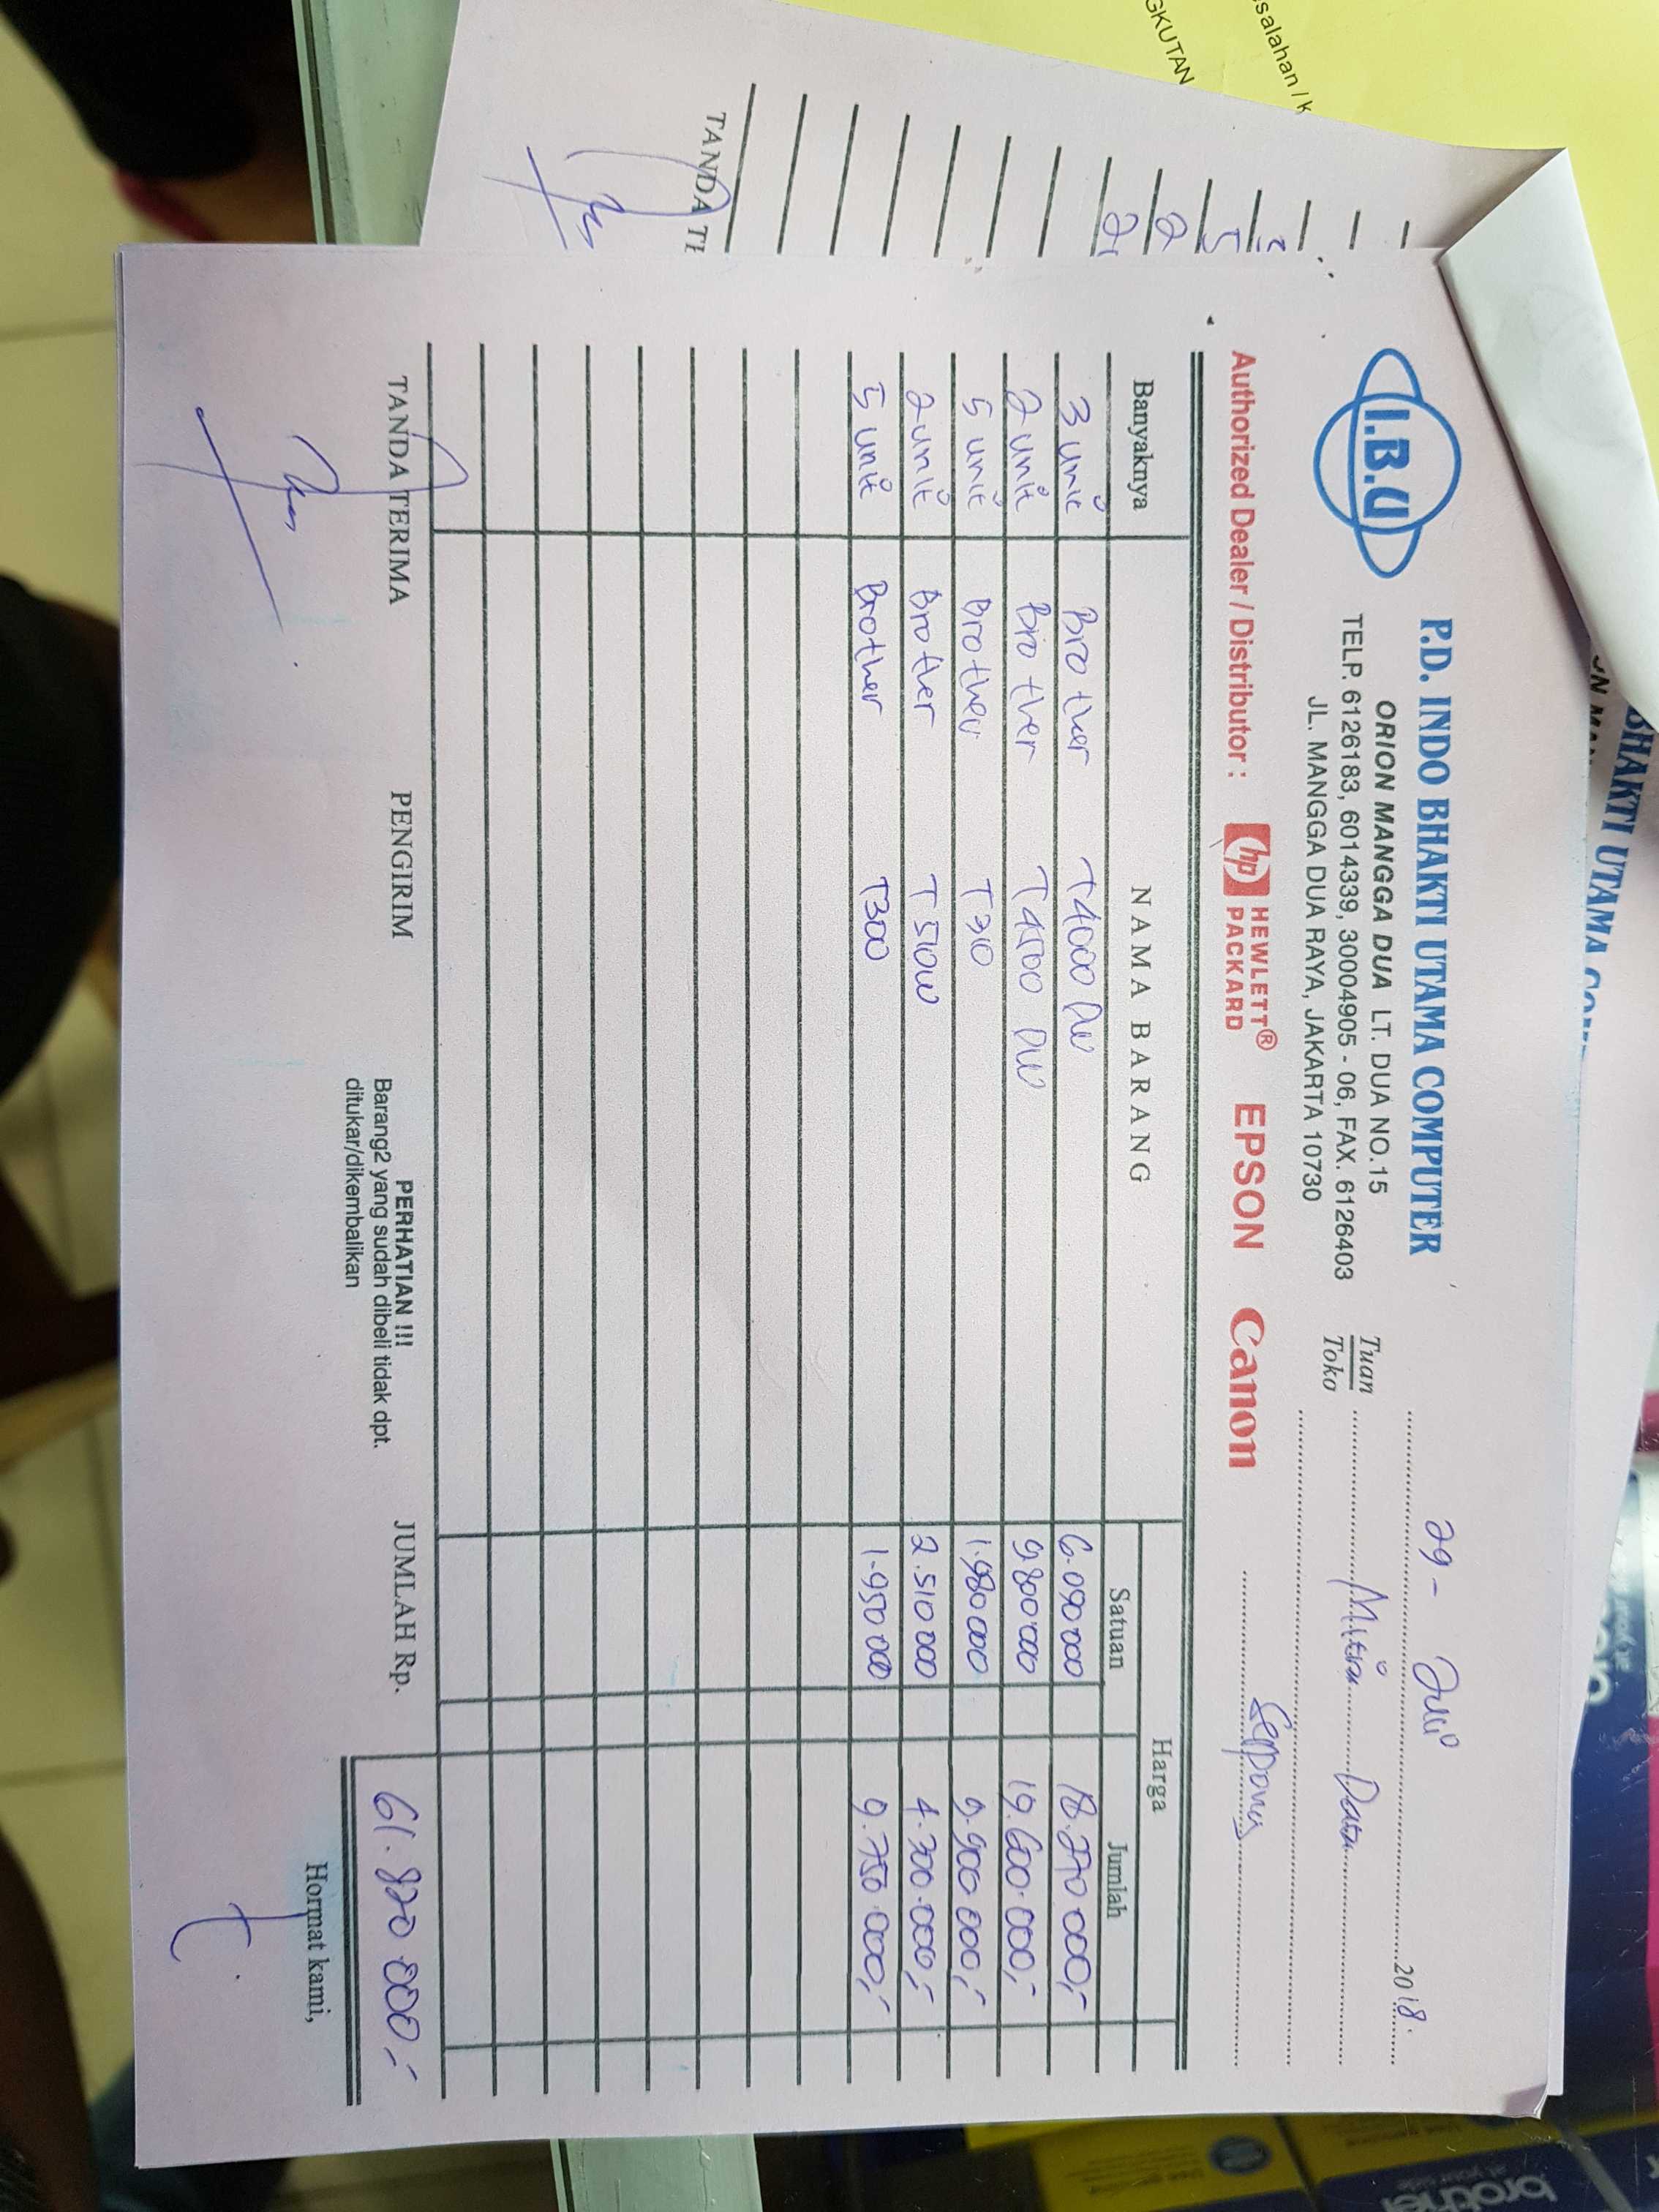 salahan / k
GKUTAN
TANDA TE
BHAKTI UTAMA COM
I.B.U
P.D. INDO BHAKTI UTAMA COMPUTER
ORION MANGGA DUA LT. DUA NO.15
TELP. 6126183, 6014339, 30004905 - 06, FAX. 6126403
JL. MANGGA DUA RAYA, JAKARTA 10730
29 - Juli 2018.
Tuan
Toko
Mitra Data
Serpong
Authorized Dealer / Distributor : hp HEWLETT® PACKARD EPSON Canon
Banyaknya NAMA BARANG Harga
Satuan Jumlah
3 unit Brother T4000 DW 6.090.000 18.270.000,-
2 unit Brother T4500 DW 9.800.000 19.600.000,-
5 unit Brother T310 1.980.000 9.900.000,-
2 unit Brother T510W 2.510.000 4.300.000,-
5 unit Brother T300 1.950.000 9.750.000,-
TANDA TERIMA PENGIRIM
PERHATIAN !!!
Barang2 yang sudah dibeli tidak dpt.
ditukar/dikembalikan
JUMLAH Rp. 61.820.000,-
Hormat kami,
brother